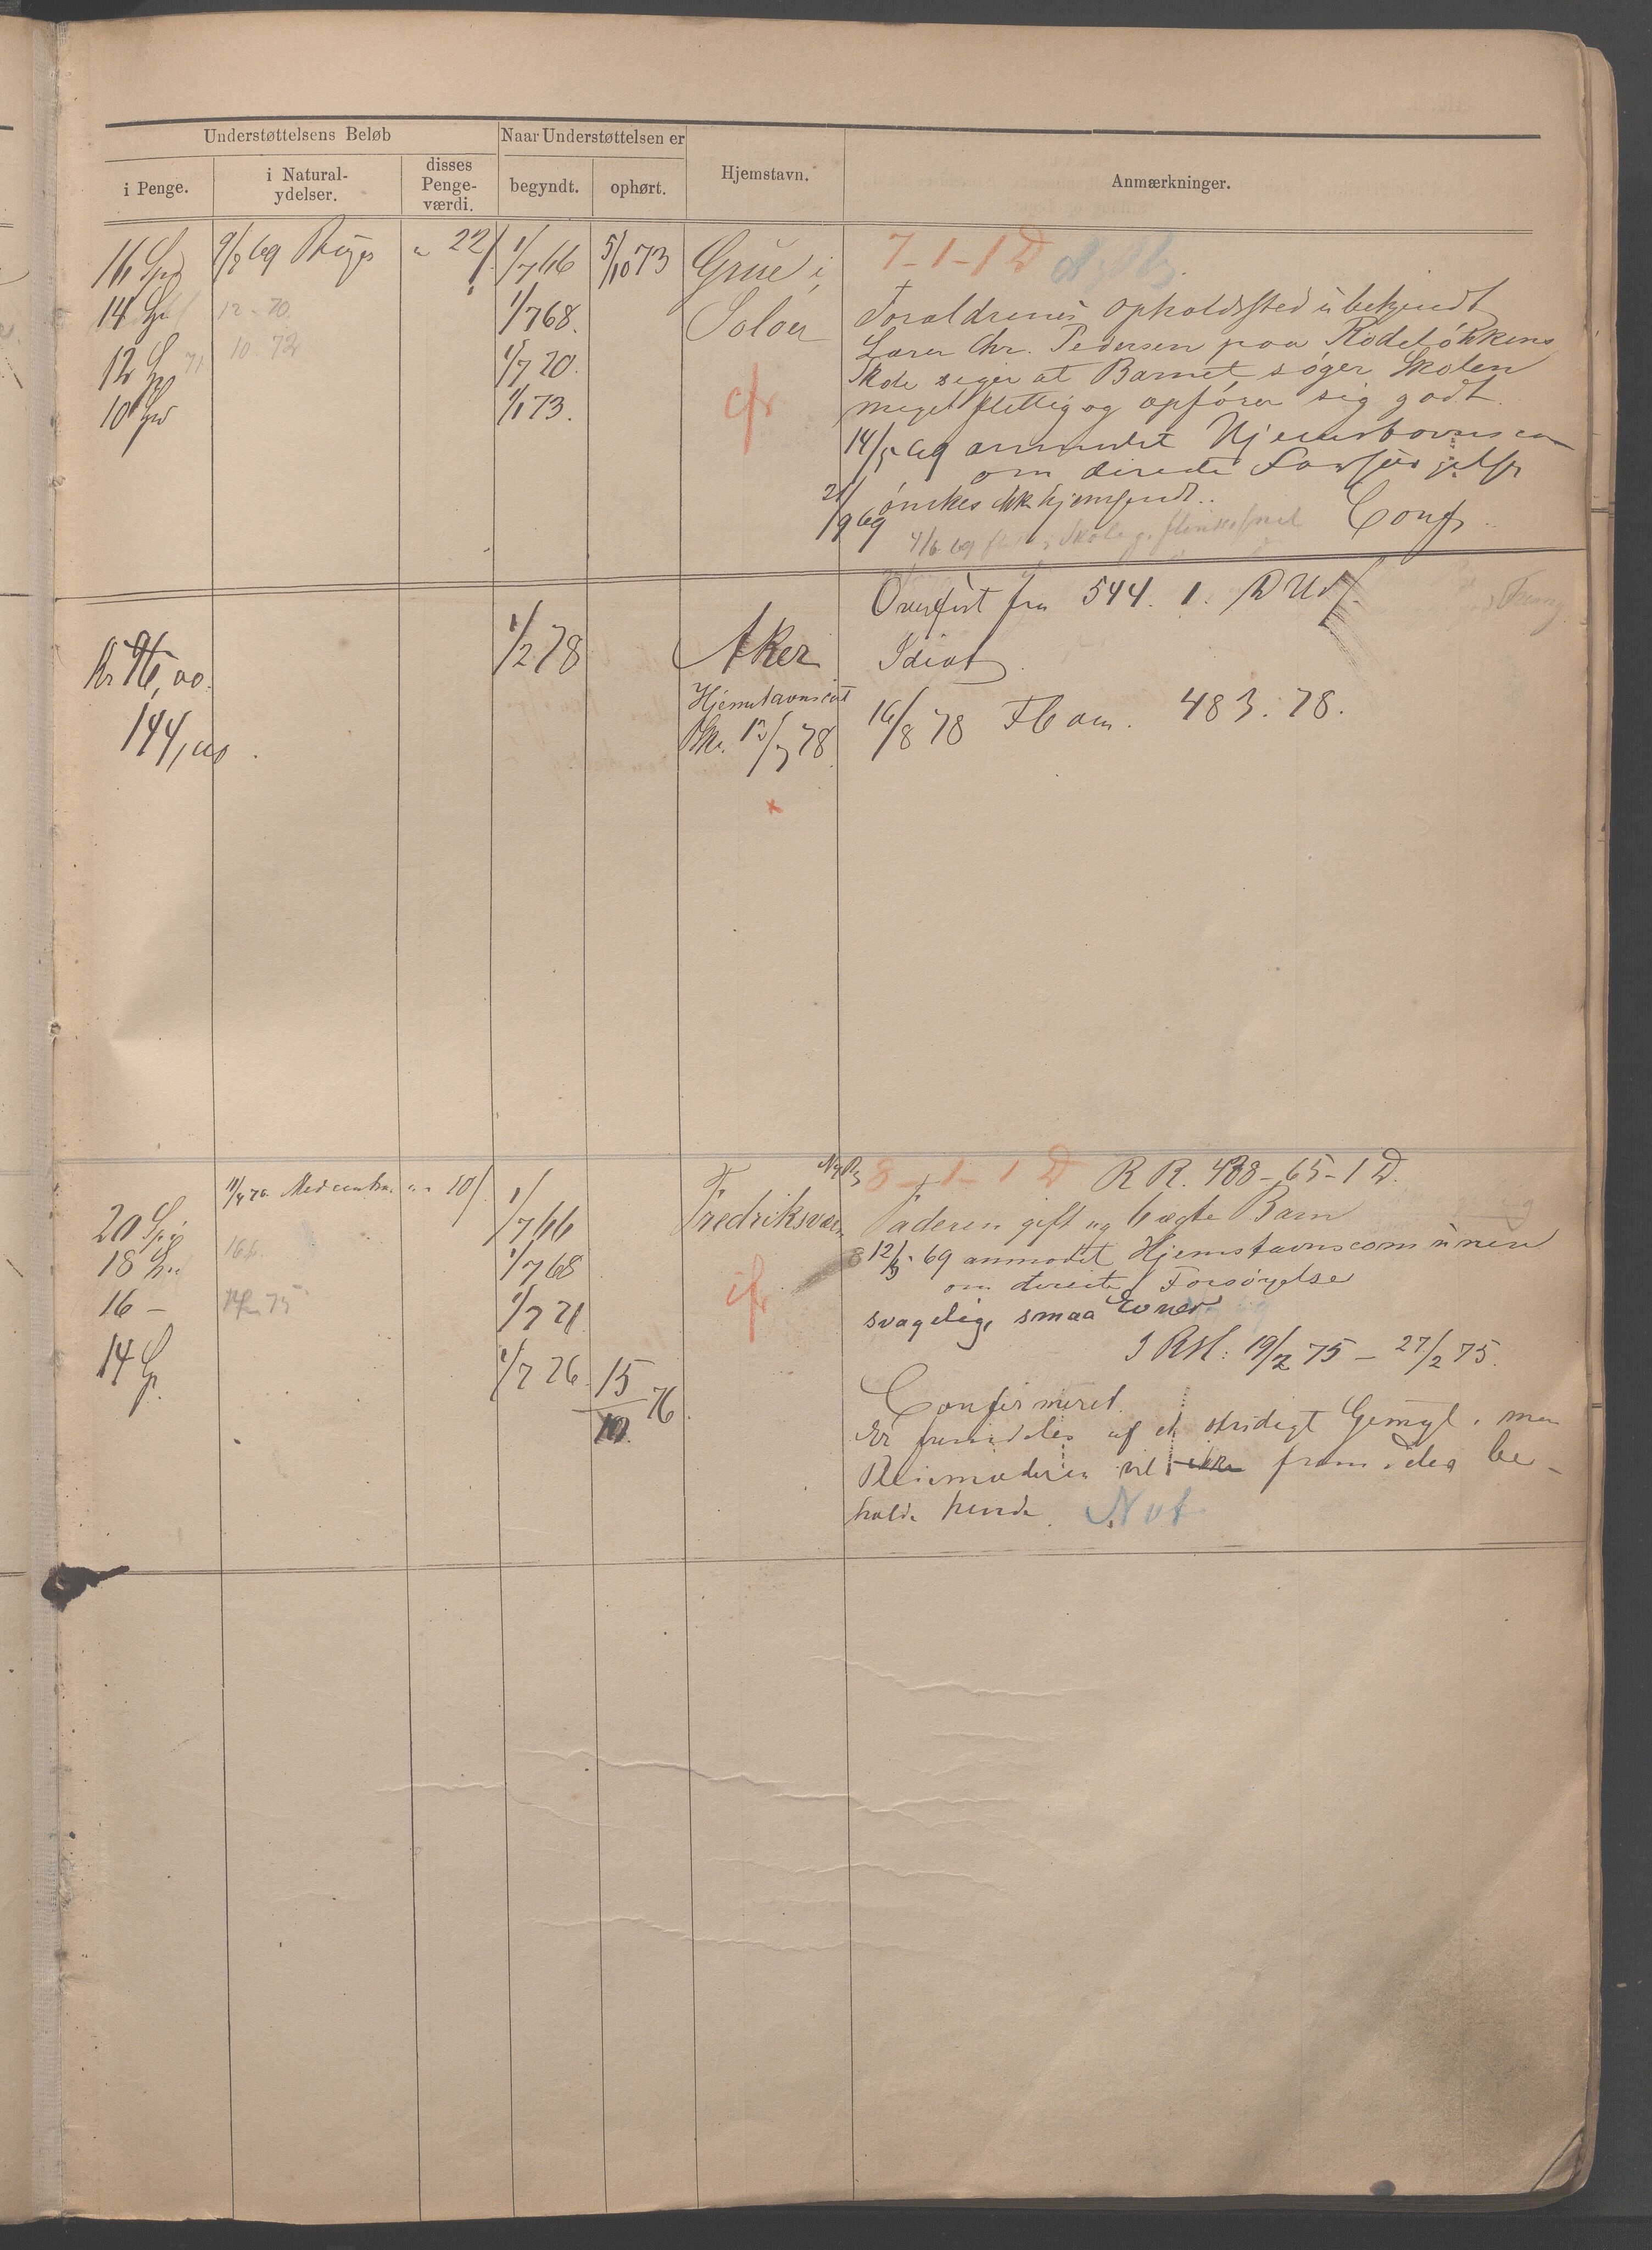 Understøttelsens Beløb
Naar Understøttelsen er
i Penge.
i Natural-
ydelser.
disses
Penge-
værdi.
begyndt.
ophørt.
Hjemstavn.
Anmærkninger.
16 Spd
9/8 69
" 22
1/7 66
5/10 73
Grue i
7-1-1 D
14 Sp
12-70
1/7 68.
Soløer
Forældrenes Opholdssted ubekjendt
12 Sp 71
10.72
1/7 70.
Lærer Chr. Pedersen paa Rødeløkkens
Skole siger at Barnet søger Skolen
10 Spd
1/1 73.
cfr
meget flittig og opfører sig godt.
14/5 69 anmodet Hjemstavnscom
om directe Forsørgelse
21/9 69 ønskes ikke hjemsendt.
Conf.
Overført fra 544. 1. D Ud.
Kr 96,00
1/2 78
Aker
Idiot.
144,00.
Hjemstavnscot
Skr. 12/7 78
16/8 78 F Com. 483. 78.
x
11/4 76.
10/
Ny Pr
8-1-1 D
R R. 488-65-1 D.
20 Spd
1/7 66
Fredriksværn
Faderen gift og 6 ægte Barn
18 Spd
1/7 68
12/5 69 anmodet Hjemstavnscommunen
om directe Forsørgelse
16 –
75
1/7 71
cfr
svagelig, smaa Evner
14 Sp.
1/7 76
15/10 76.
I RH: 19/2 75 – 27/2 75.
Confirmeret.
Er fremdeles af et stridigt Gemyt, men
Pleiemoderen vil ikke fremdeles be-
holde hende. Not